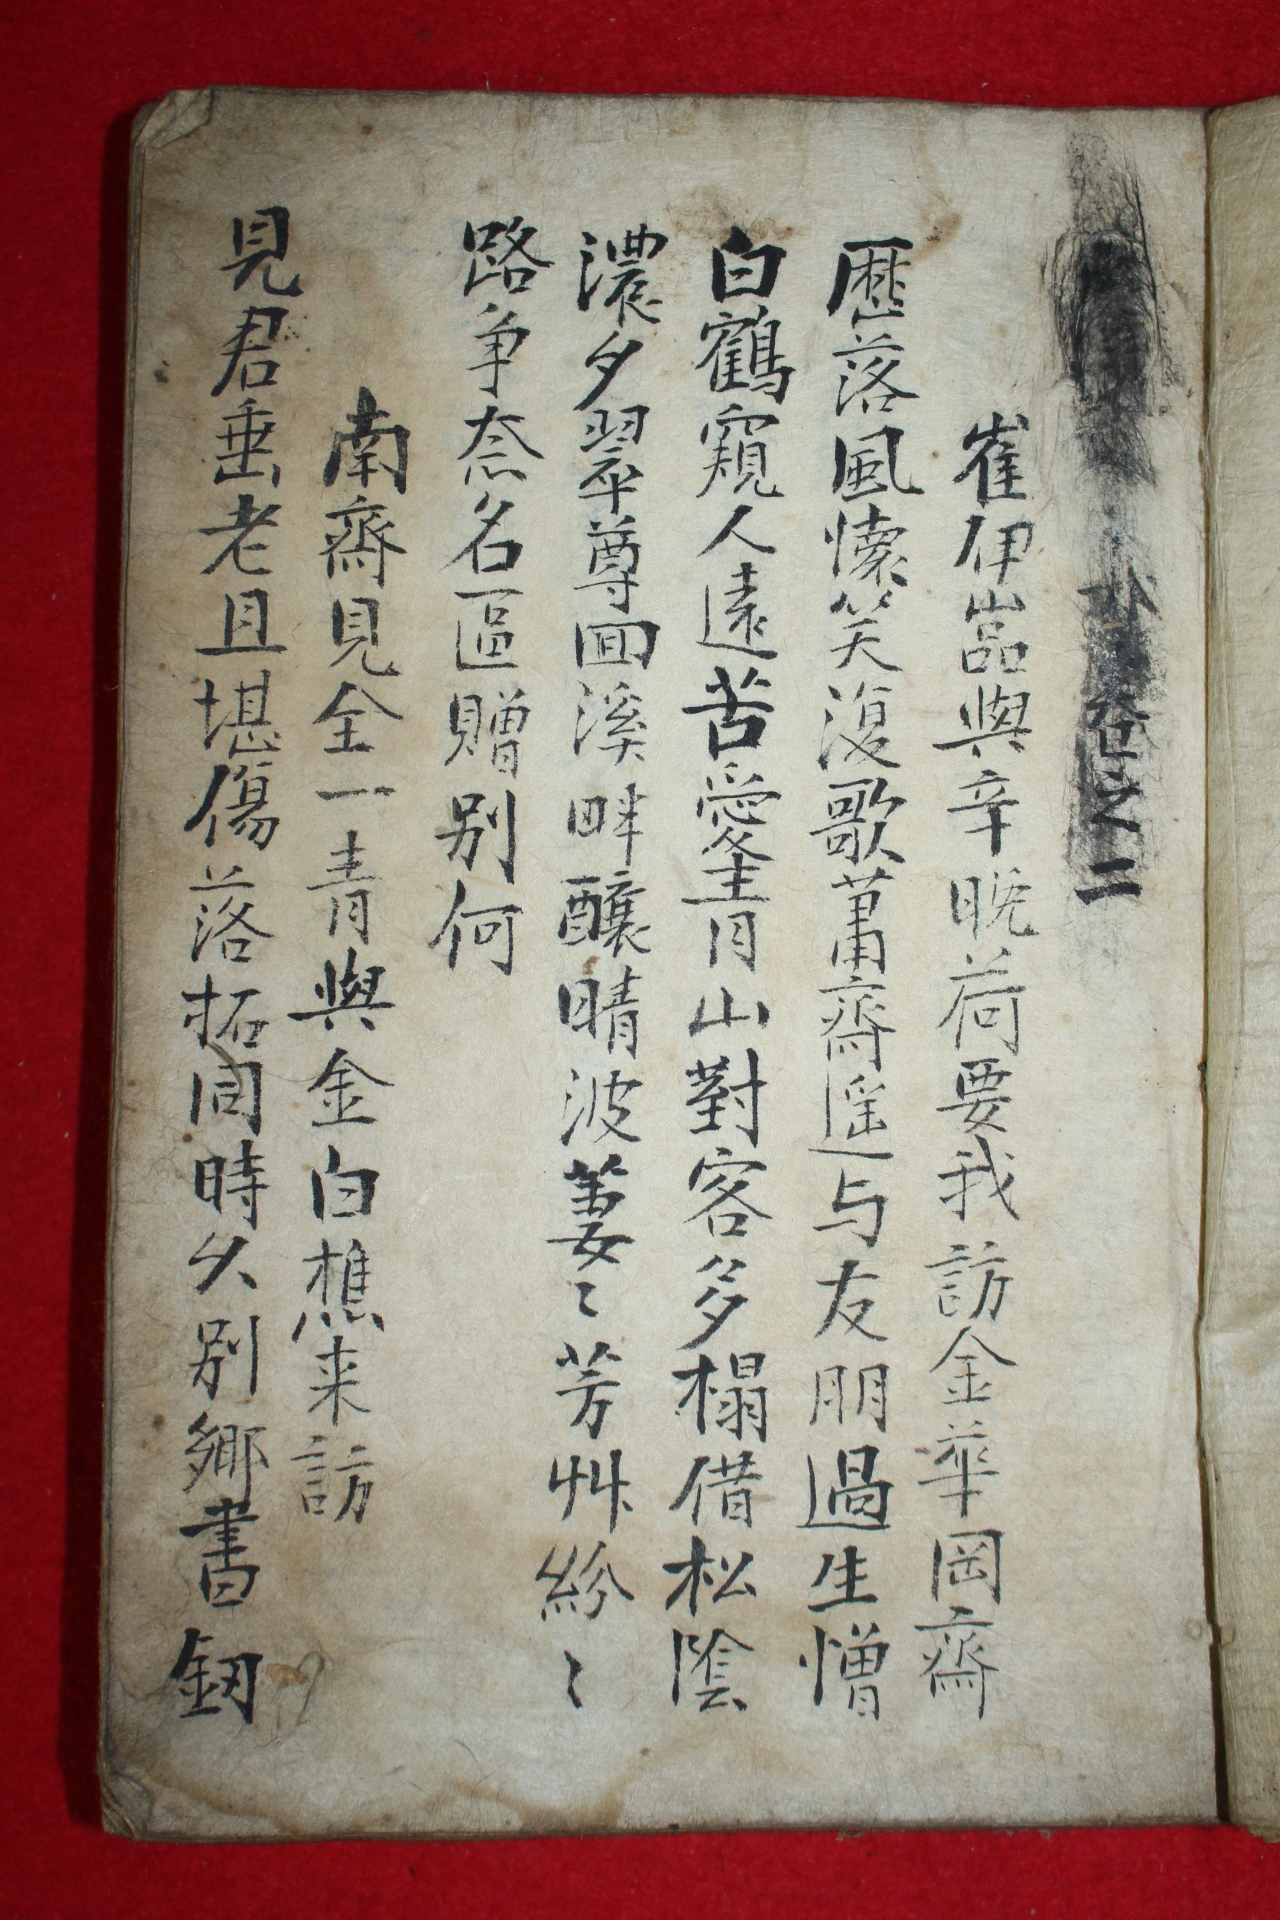 卷之二
崔伊嵓與辛晩荷要我訪金華岡齋
歷落風懷笑復歌蕭齋遥与友朋過生憎
白鶴窺人遠苦愛青山對客多榻借松陰
濃夕翠尊囬溪畔釀晴波萋〻芳艸紛〻
路争奈名區贈别何
南齋見全一青與金白樵来訪
見君垂老且堪傷落拓同時久别鄉書釼